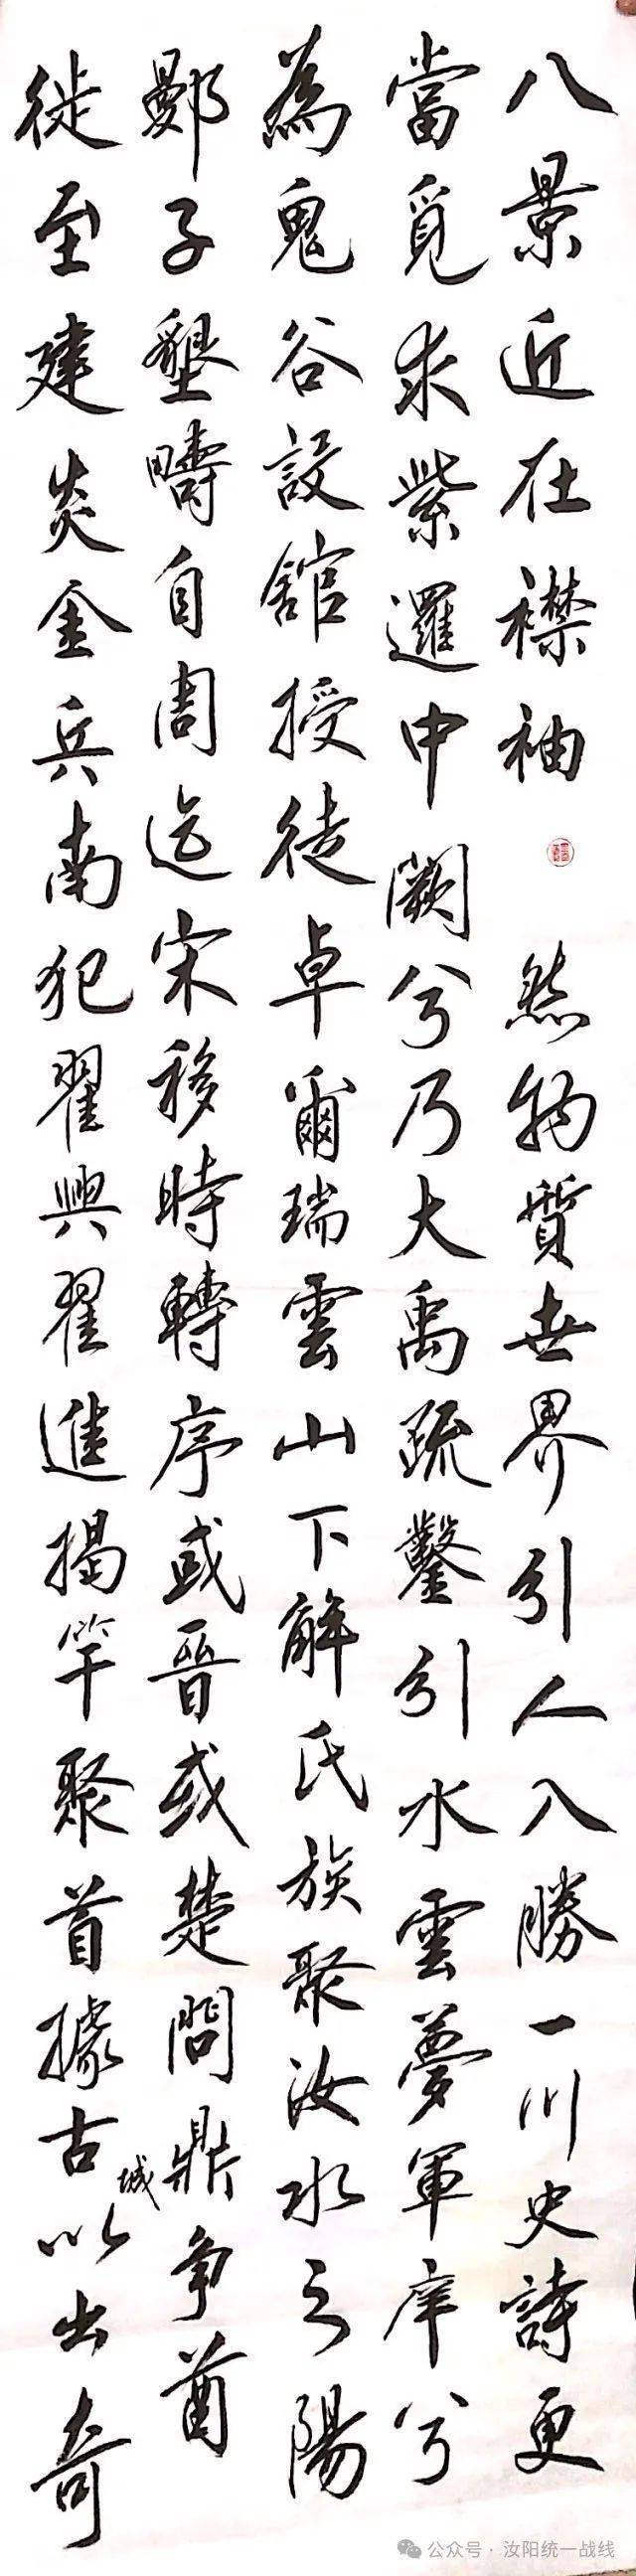 八景近在襟袖 然物質世界引人入勝一川史詩更
當覓求紫邏中闕兮乃大禹疏鑿引水雲夢軍庠兮
為鬼谷設館授徒卓爾瑞雲山下解氏族聚汝水之陽
鄤子墾疇自周迄宋移時轉序或晉或楚問鼎爭酋
徙至建炎金兵南犯翟興翟進揭竿聚首據古城以出奇
公众号·汝阳统一战线